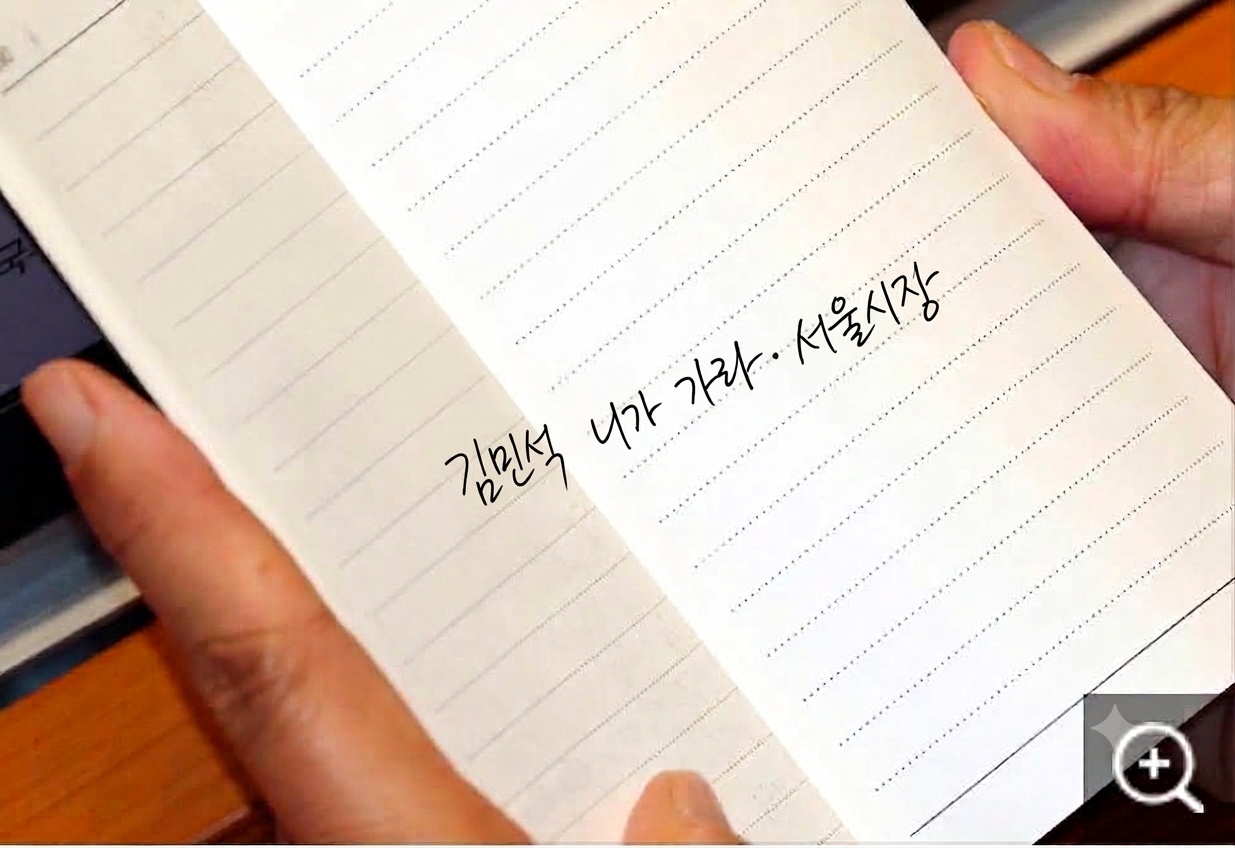 김민석 니가 가라. 서울시장